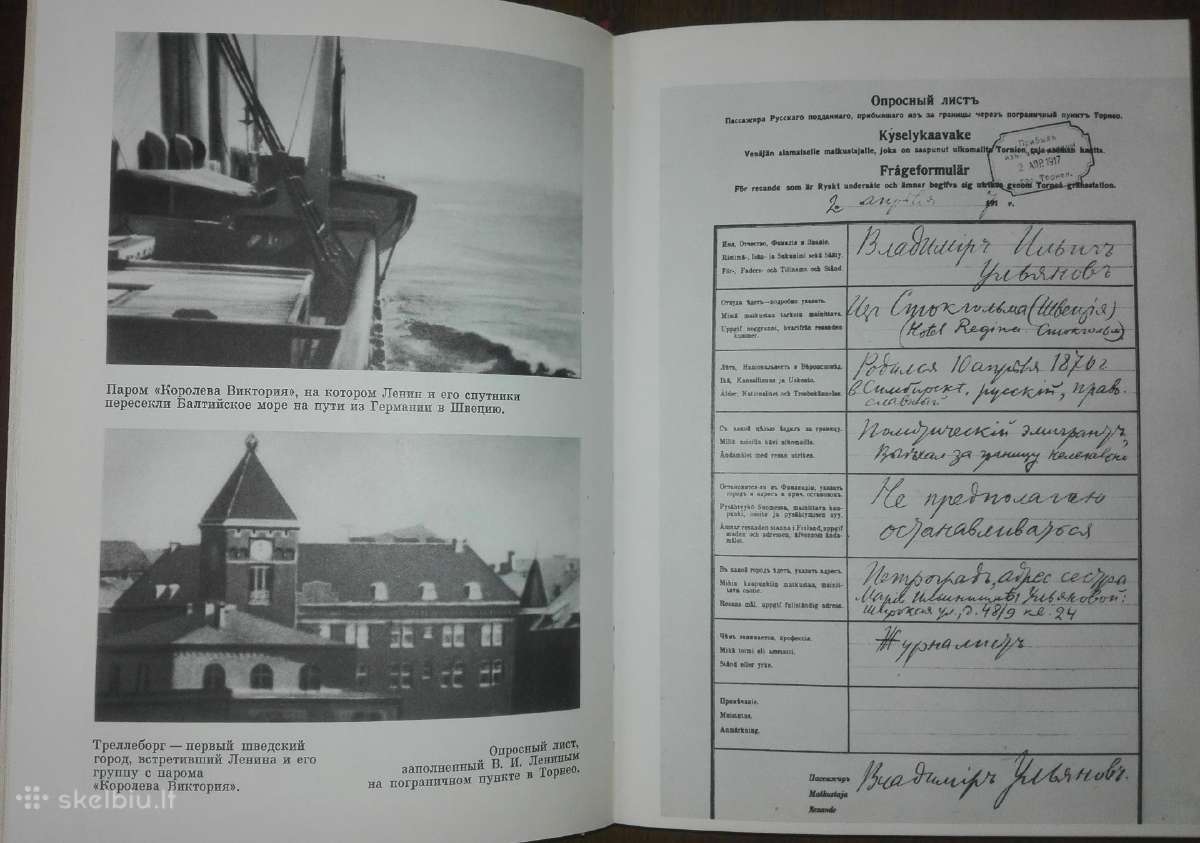 Паром «Королева Виктория», на котором Ленин и его спутники
пересекли Балтийское море на пути из Германии в Швецию.
Треллеборг — первый шведский
город, встретивший Ленина и его
группу с парома
«Королева Виктория».
Опросный лист,
заполненный В. И. Лениным
на пограничном пункте в Торнео.
skelbiu.lt
Опросный листъ
Пассажира Русскаго подданнаго, прибывшаго изъ за границы черезъ пограничный пунктъ Торнео.
Kyselykaavake
Venäjän alamaiselle matkustajalle, joka on saapunut ulkomailta Tornion kautta.
Frågeformulär
För resande som är Ryskt undersåte och ämnar begifva sig utrikes genom Torneå gränsstation.
Прибылъ
2 АПР. 1917
Торнео.
2 апрѣля 191 7 г.
Имя, Отчество, Фамилія и Званіе.
Ristimä-, Isän- ja Sukunimi sekä Sääty.
För-, Faders- och Tillnamn och Stånd.
Владиміръ Ильичъ
Ульяновъ
Откуда ѣдетъ—подробно указать.
Mistä matkustaa tarkoin mainittava.
Uppgif noggrannt, hvarifrån resanden
kommer.
Изъ Стокгольма (Швеція)
(Hotel Regina Стокгольм)
Лѣтъ, Національность и Вѣроисповѣд.
Ikä, Kansallisuus ja Uskonto.
Ålder, Nationalitet och Trosbekännelse.
Родился 10 апрѣля 1870 г
в Симбирскѣ, русскій, право-
славный
Съ какой цѣлью ѣздилъ за границу.
Millä asioilla kävi ulkomailla.
Ändamålet med resan utrikes.
Политическій эмигрантъ.
Выѣхал за границу нелегально
Остановится-ли въ Финляндіи, указать
городъ и адресъ и прич. остановокъ.
Pysähtyykö Suomessa, mainittava kau-
punki, osoite ja pysähtymisen syy.
Ämnar resanden stanna i Finland, uppgif
staden och adressen, äfvensom ända-
målet.
Не предполагаю
останавливаться
Въ какой городъ ѣдетъ, указать адресъ.
Mihin kaupunkiin matkustaa, mainit-
tava osoite.
Resans mål, uppgif fullständig adress.
Петроградъ, адрес сестры
Марія Ильинишна Ульяновой:
Широкая ул, д. 48/9 кв. 24
Чѣмъ занимается, профессія.
Mikä toimi eli ammatti.
Stånd eller yrke.
Журналистъ
Примѣчаніе.
Muistutus.
Anmärkning.
Пассажиръ
Matkustaja
Resande
Владиміръ Ульяновъ.